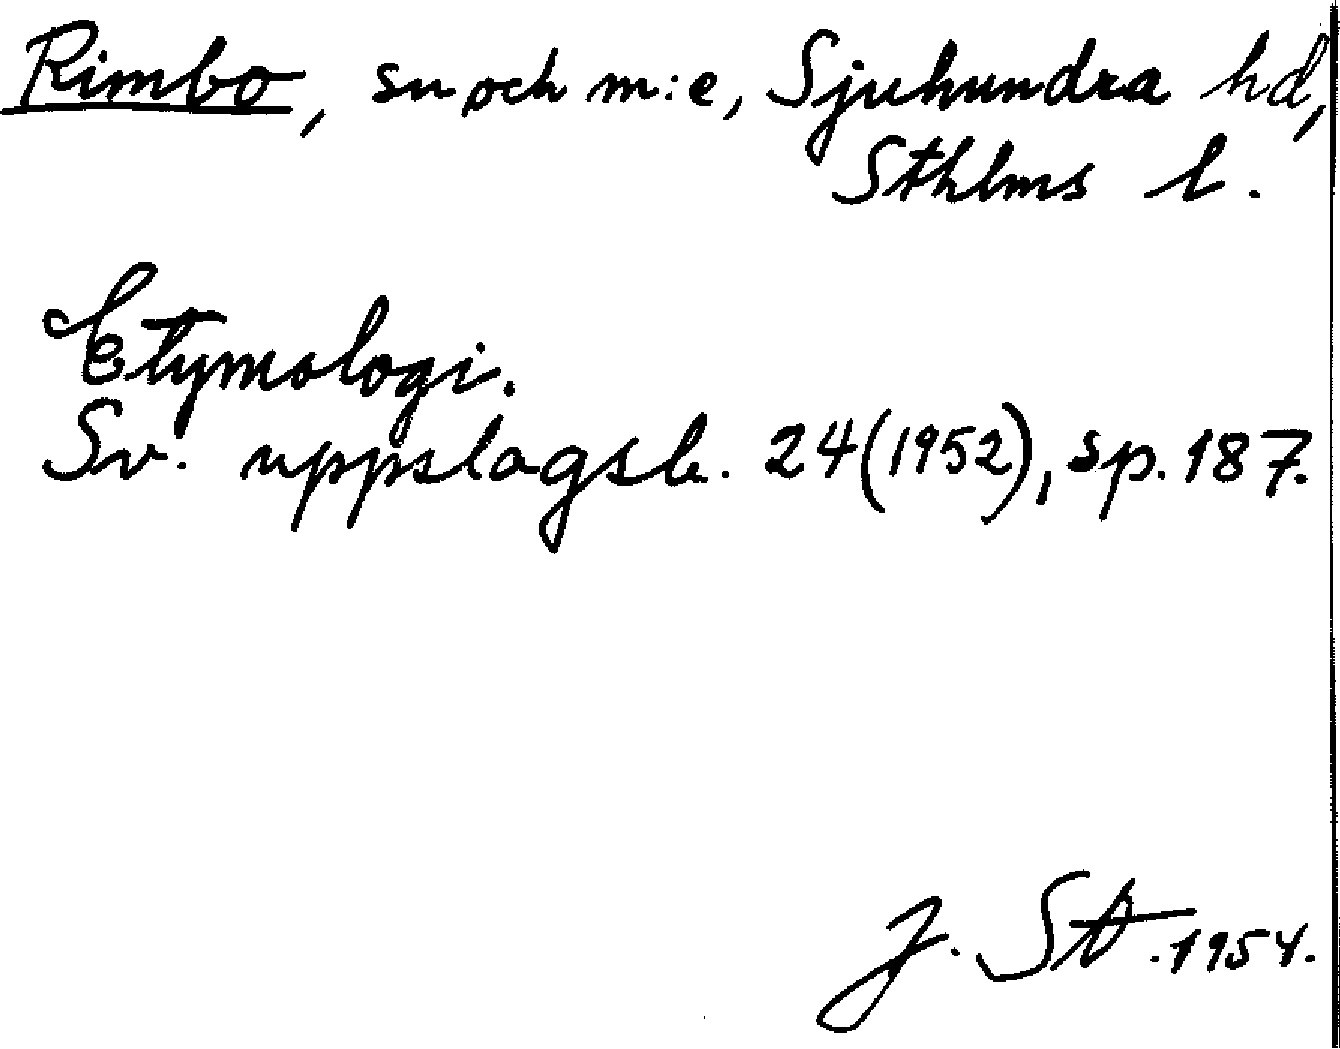 Rimbo, sn och m:e, Sjuhundra hd,
Sthlms l.
Etymologi.
Sv. uppslagsb. 24(1952), sp. 187.
J. St. 1954.